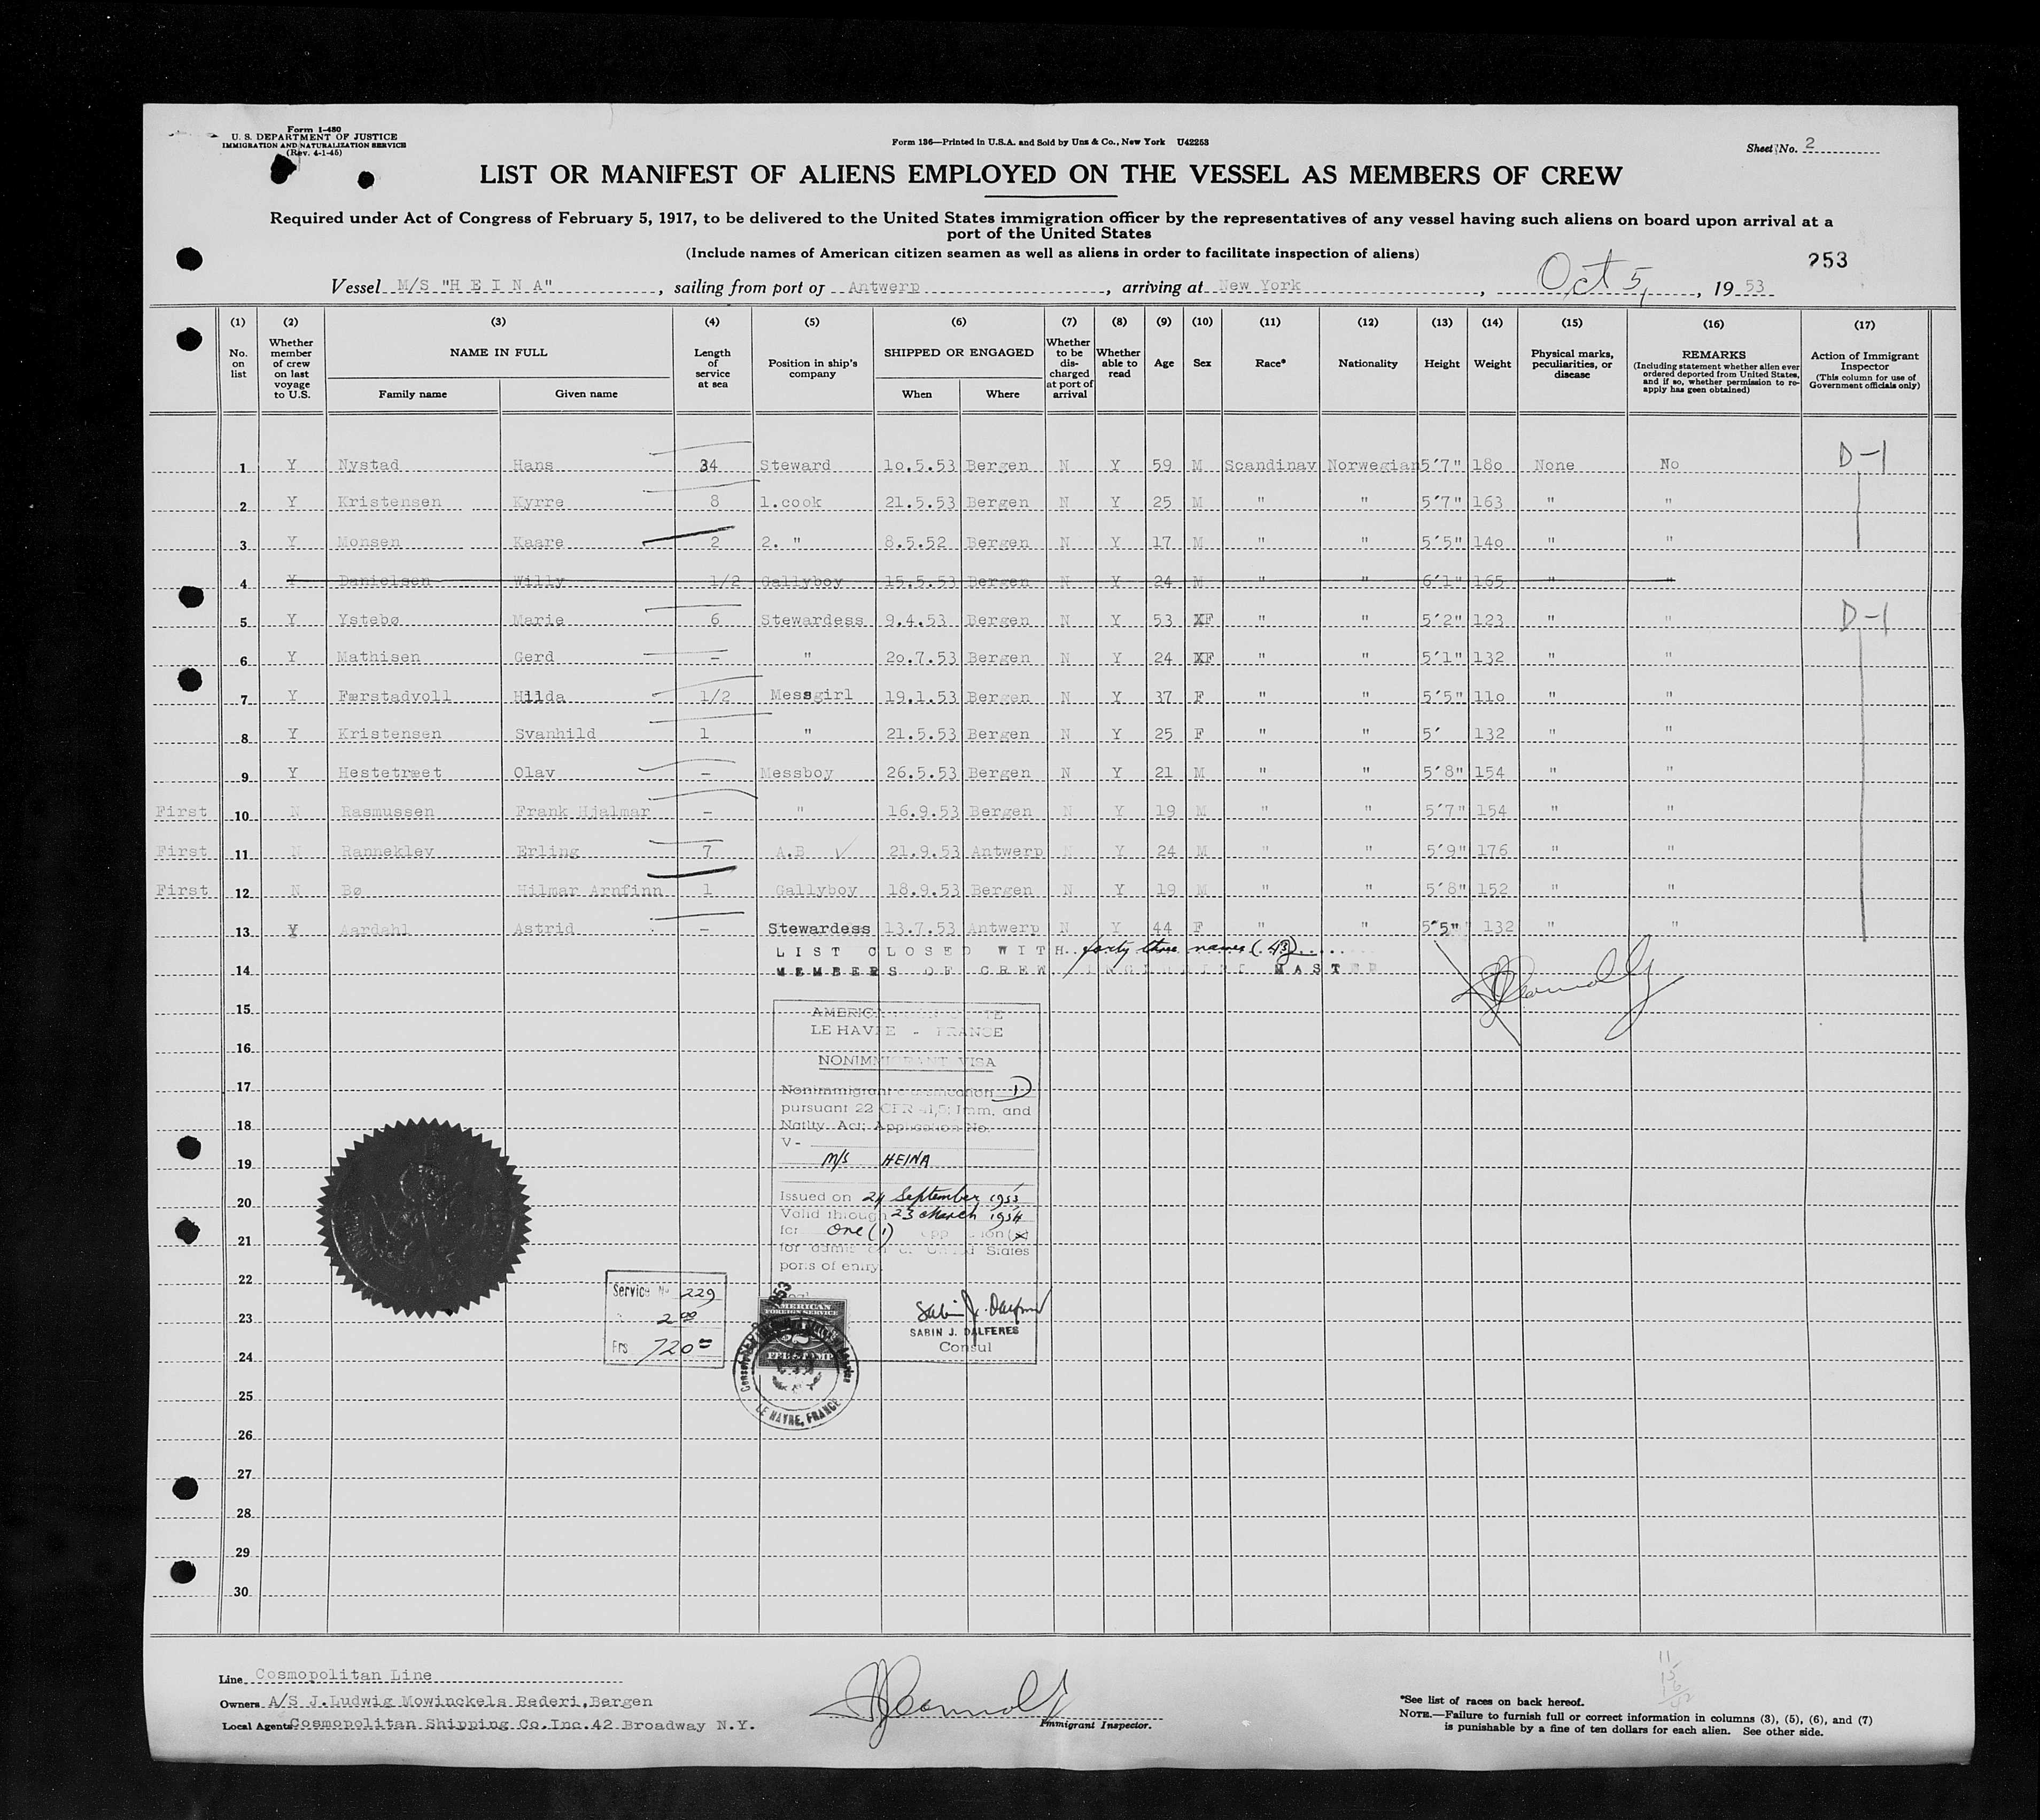 Form I-480
U. S. DEPARTMENT OF JUSTICE
IMMIGRATION AND NATURALIZATION SERVICE
(Rev. 4-1-45)
Form 136—Printed in U.S.A. and Sold by Unz & Co., New York U42253
Sheet No. 2
LIST OR MANIFEST OF ALIENS EMPLOYED ON THE VESSEL AS MEMBERS OF CREW
Required under Act of Congress of February 5, 1917, to be delivered to the United States immigration officer by the representatives of any vessel having such aliens on board upon arrival at a
port of the United States
(Include names of American citizen seamen as well as aliens in order to facilitate inspection of aliens)
253
Vessel M/S "H E I N A", sailing from port of Antwerp, arriving at New York, Oct 5, 1953
(1) (2) (3) (4) (5) (6) (7) (8) (9) (10) (11) (12) (13) (14) (15) (16) (17)
No. on list
Whether member of crew on last voyage to U.S.
NAME IN FULL
Family name Given name
Length of service at sea
Position in ship's company
SHIPPED OR ENGAGED
When Where
Whether to be discharged at port of arrival
Whether able to read
Age
Sex
Race*
Nationality
Height
Weight
Physical marks, peculiarities, or disease
REMARKS
(Including statement whether alien ever ordered deported from United States, and if so, whether permission to re-apply has geen obtained)
Action of Immigrant Inspector
(This column for use of Government officials only)
1 Y Nystad Hans 34 Steward 1o.5.53 Bergen N Y 59 M Scandinav Norwegian 5'7" 18o None No D-1
2 Y Kristensen Kyrre 8 1.cook 21.5.53 Bergen N Y 25 M " " 5'7" 163 " "
3 Y Monsen Kaare 2 2. " 8.5.52 Bergen N Y 17 M " " 5'5" 14o " "
4 Y Danielsen Willy 1/2 Gallyboy 15.5.53 Bergen N Y 24 M " " 6'1" 165 " "
5 Y Ystebø Marie 6 Stewardess 9.4.53 Bergen N Y 53 XF " " 5'2" 123 " " D-1
6 Y Mathisen Gerd - " 2o.7.53 Bergen N Y 24 XF " " 5'1" 132 " "
7 Y Færstadvoll Hilda 1/2 Messgirl 19.1.53 Bergen N Y 37 F " " 5'5" 11o " "
8 Y Kristensen Svanhild 1 " 21.5.53 Bergen N Y 25 F " " 5' 132 " "
9 Y Hestetræet Olav - Messboy 26.5.53 Bergen N Y 21 M " " 5'8" 154 " "
First 10 N Rasmussen Frank Hjalmar - " 16.9.53 Bergen N Y 19 M " " 5'7" 154 " "
First 11 N Ranneklev Erling 7 A.B ✓ 21.9.53 Antwerp N Y 24 M " " 5'9" 176 " "
First 12 N Bø Hilmar Arnfinn 1 Gallyboy 18.9.53 Bergen N Y 19 M " " 5'8" 152 " "
13 Y Aardahl Astrid - Stewardess 13.7.53 Antwerp N Y 44 F " " 5'5" 132 " "
LIST CLOSED WITH forty three names (43)
14 MEMBERS OF CREW INCLUDING MASTER
15
AMERICAN CONSULATE
LE HAVRE - FRANCE
16
NONIMMIGRANT VISA
17 Nonimmigrant classification D
pursuant 22 CFR 41.5; Imm. and
18 Natlty. Act; Application No.
V-
19 M/S HEINA
20 Issued on 24 September 1953
Valid through 23 March 1954
for One (1) application(s)
21 for admission at United States
ports of entry.
22
Service No 229
2.00
Frs 720
23
AMERICAN
FOREIGN SERVICE
FEE STAMP
SABIN J. DALFERES
Consul
24
LE HAVRE, FRANCE
25
26
27
28
29
30
Line Cosmopolitan Line
Owners A/S J.Ludwig Mowinckels Rederi,Bergen
Local Agents Cosmopolitan Shipping Co.Inc.42 Broadway N.Y.
Immigrant Inspector.
*See list of races on back hereof.
NOTE.—Failure to furnish full or correct information in columns (3), (5), (6), and (7)
is punishable by a fine of ten dollars for each alien. See other side.